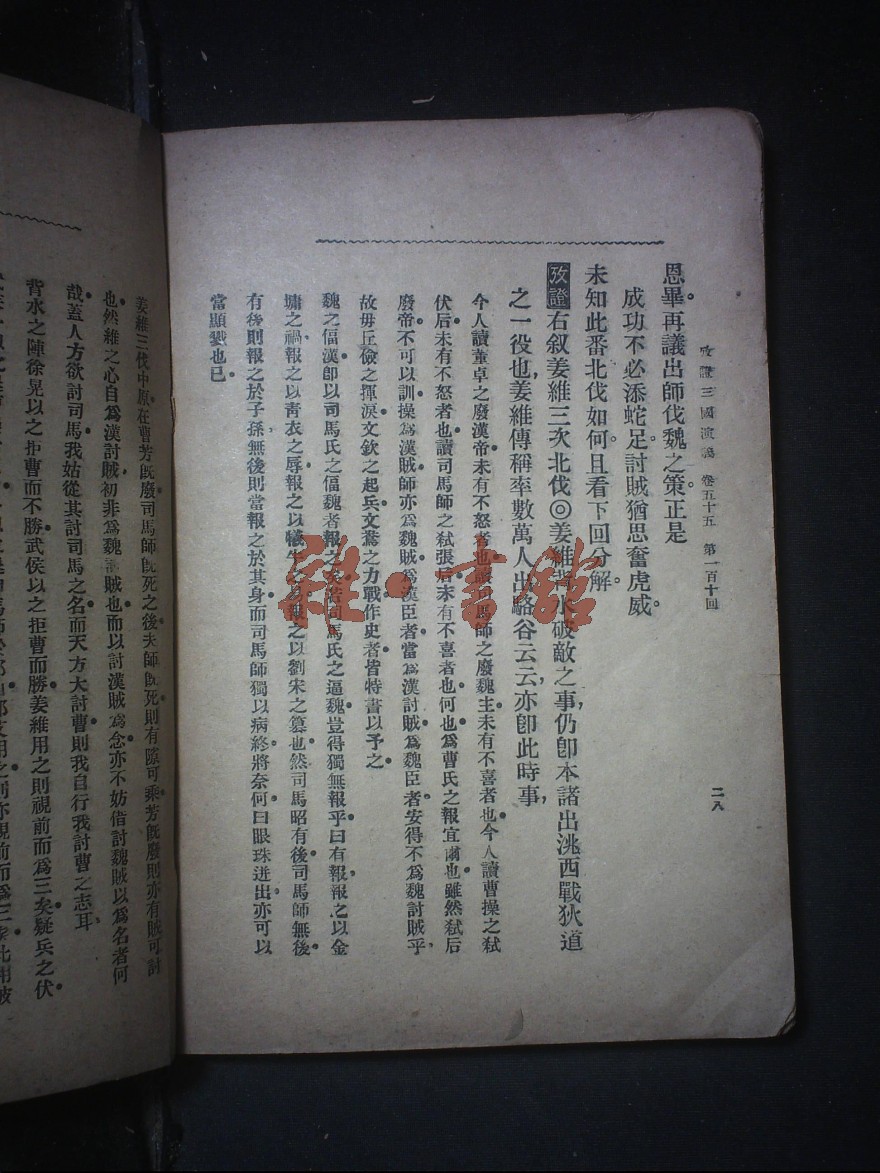 攷證三國演義 卷五十五 第一百十回
二八
恩畢。再議出師伐魏之策。正是
成功不必添蛇足。討賊猶思奮虎威。
未知此番北伐如何。且看下回分解。
攷證 右叙姜維三次北伐◎姜維背水破敵之事，仍卽本諸出洮西戰狄道
之一役也，姜維傳稱率數萬人出駱谷云云，亦卽此時事，
今人讀董卓之廢漢帝未有不怒者也讀司馬師之廢魏主未有不喜者也今人讀曹操之弒
伏后未有不怒者也讀司馬師之弒張后未有不喜者也何也爲曹氏之報宜爾也雖然弒后
廢帝不可以訓操爲漢賊師亦爲魏賊爲漢臣者當爲漢討賊爲魏臣者安得不爲魏討賊乎
故毋丘儉之揮淚文欽之起兵文鴦之力戰作史者皆特書以予之
魏之偪漢卽以司馬氏之偪魏者報之矣若司馬氏之逼魏豈得獨無報乎曰有報報之以金
墉之禍報之以靑衣之辱報之以犧牛之易報之以劉宋之篡也然司馬昭有後司馬師無後
有後則報之於子孫無後則當報之於其身而司馬師獨以病終將奈何曰眼珠迸出亦可以
當顯戮也已
姜維三伐中原在曹芳旣廢司馬師旣死之後夫師旣死則有隙可乘芳旣廢則亦有賊可討
也然維之心自爲漢討賊初非爲魏討賊也而以討漢賊爲念亦不妨借討魏賊以爲名者何
哉蓋人方欲討司馬我姑從其討司馬之名而天方大討曹則我自行我討曹之志耳
背水之陣徐晃以之拒曹而不勝武侯以之拒曹而勝姜維用之則視前而爲三矣疑兵之伏
雜·書館